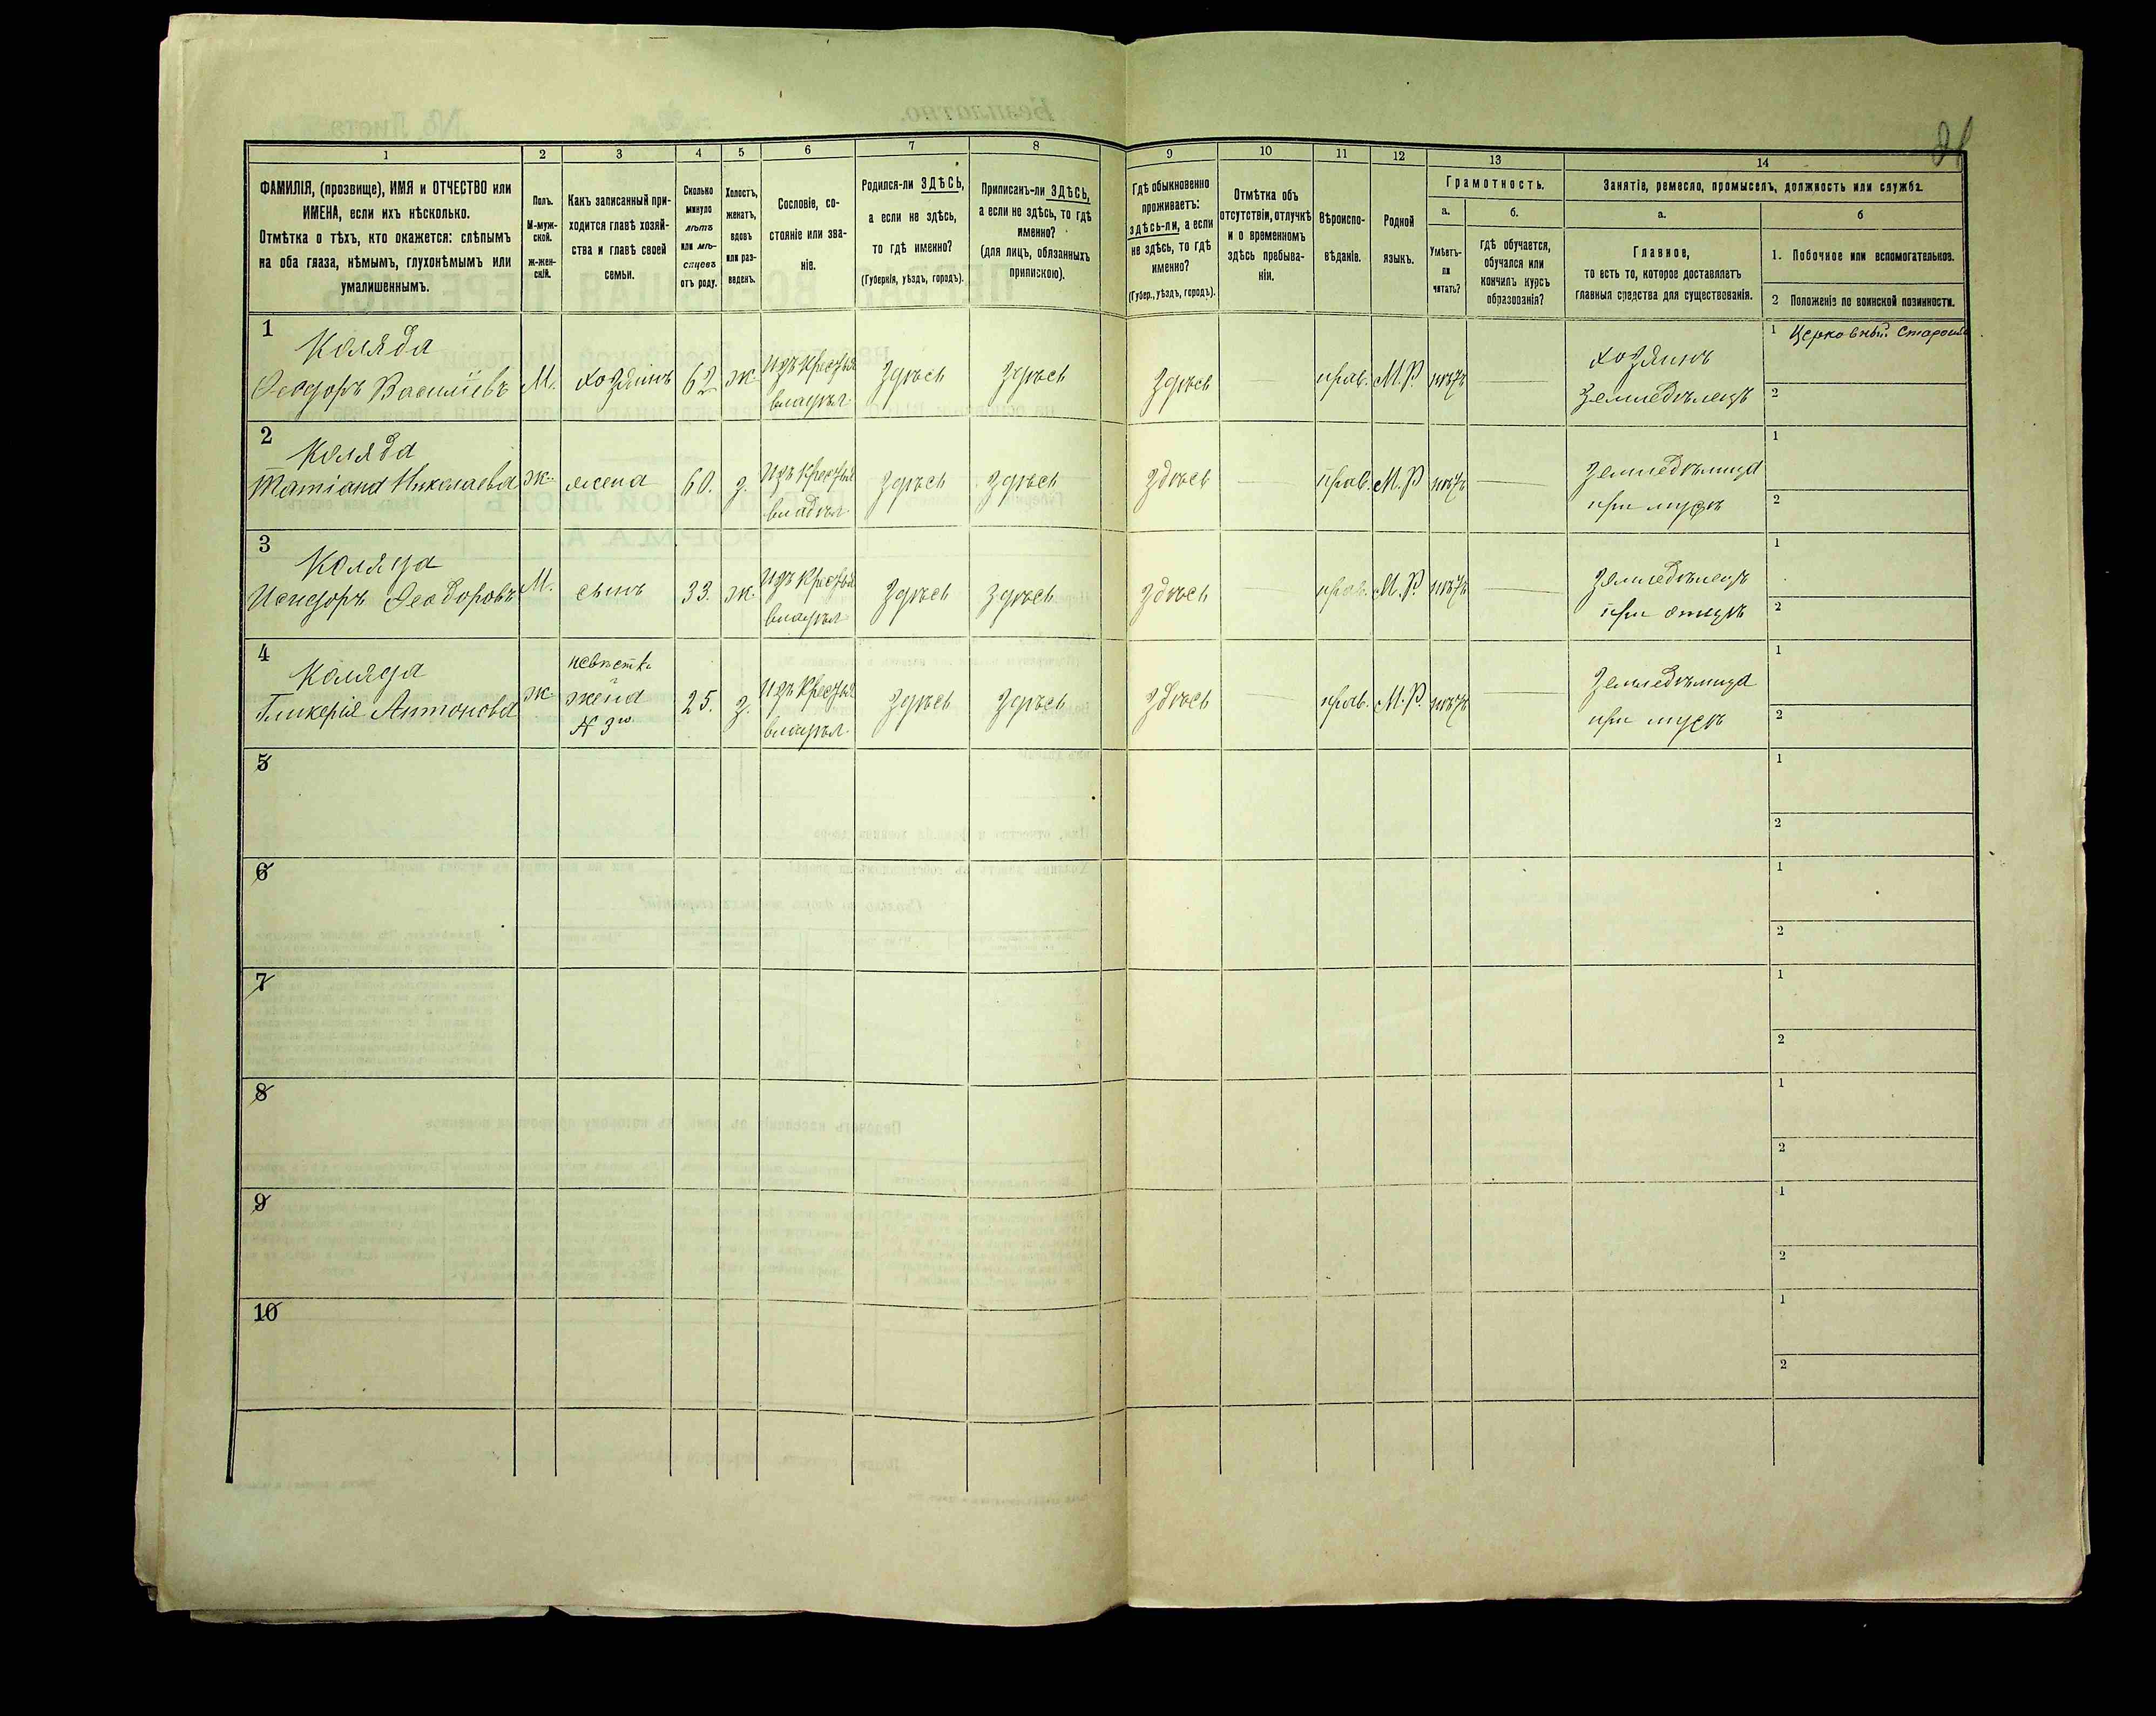 81
1 2 3 4 5 6 7 8 9 10 11 12 13 14
ФАМИЛІЯ, (прозвище), ИМЯ и ОТЧЕСТВО или
ИМЕНА, если ихъ нѣсколько.
Отмѣтка о тѣхъ, кто окажется: слѣпымъ
на оба глаза, нѣмымъ, глухонѣмымъ или
умалишеннымъ.
Полъ.
М-муж-
ской.
ж-жен-
скій.
Какъ записанный при-
ходится главѣ хозяй-
ства и главѣ своей
семьи.
Сколько
минуло
лѣтъ
или мѣ-
сяцевъ
отъ роду.
Холостъ,
женатъ,
вдовъ
или раз-
веденъ.
Сословіе, со-
стояніе или зва-
ніе.
Родился-ли ЗДѢСЬ,
а если не здѣсь,
то гдѣ именно?
(Губернія, уѣздъ, городъ).
Приписанъ-ли ЗДѢСЬ,
а если не здѣсь, то гдѣ
именно?
(для лицъ, обязанныхъ
припискою).
Гдѣ обыкновенно
проживаетъ:
здѣсь-ли, а если
не здѣсь, то гдѣ
именно?
(Губер., уѣздъ, городъ).
Отмѣтка объ
отсутствіи, отлучкѣ
и о временномъ
здѣсь пребыва-
ніи.
Вѣроиспо-
вѣданіе.
Родной
языкъ.
Грамотность.
а.
Умѣетъ-
ли
читать?
б.
гдѣ обучается,
обучался или
кончилъ курсъ
образованія?
Занятіе, ремесло, промыселъ, должность или служба.
а.
Главное,
то есть то, которое доставляетъ
главныя средства для существованія.
б
1. Побочное или вспомогательное.
2 Положеніе по воинской повинности.
1
Коляда
Феодоръ Василіевъ М. хозяинъ 62 ж. Изъ Крестья
владѣл. здѣсь здѣсь здѣсь — прав. М.Р. нѣтъ —
хозяинъ
земледѣлецъ
1 Церковный Староста
2
2
Коляда
Татіана Николаева ж. жена 60. з. Изъ Крестья
владѣл. здѣсь здѣсь здѣсь — прав. М.Р. нѣтъ —
земледѣлица
при мужѣ
1
2
3
Коляда
Исидоръ Феодоровъ М. сынъ 33. ж. Изъ Крестья
владѣл. здѣсь здѣсь здѣсь — прав. М.Р. нѣтъ —
земледѣлецъ
при отцѣ
1
2
4
Коляда
Гликерія Антонова ж. невѣстк.
жена
N 3го
25. з. Изъ Крестья
владѣл. здѣсь здѣсь здѣсь — прав. М.Р. нѣтъ
земледѣлица
при мужѣ
1
2
5
1
2
6
1
2
7
1
2
8
1
2
9
1
2
10
1
2